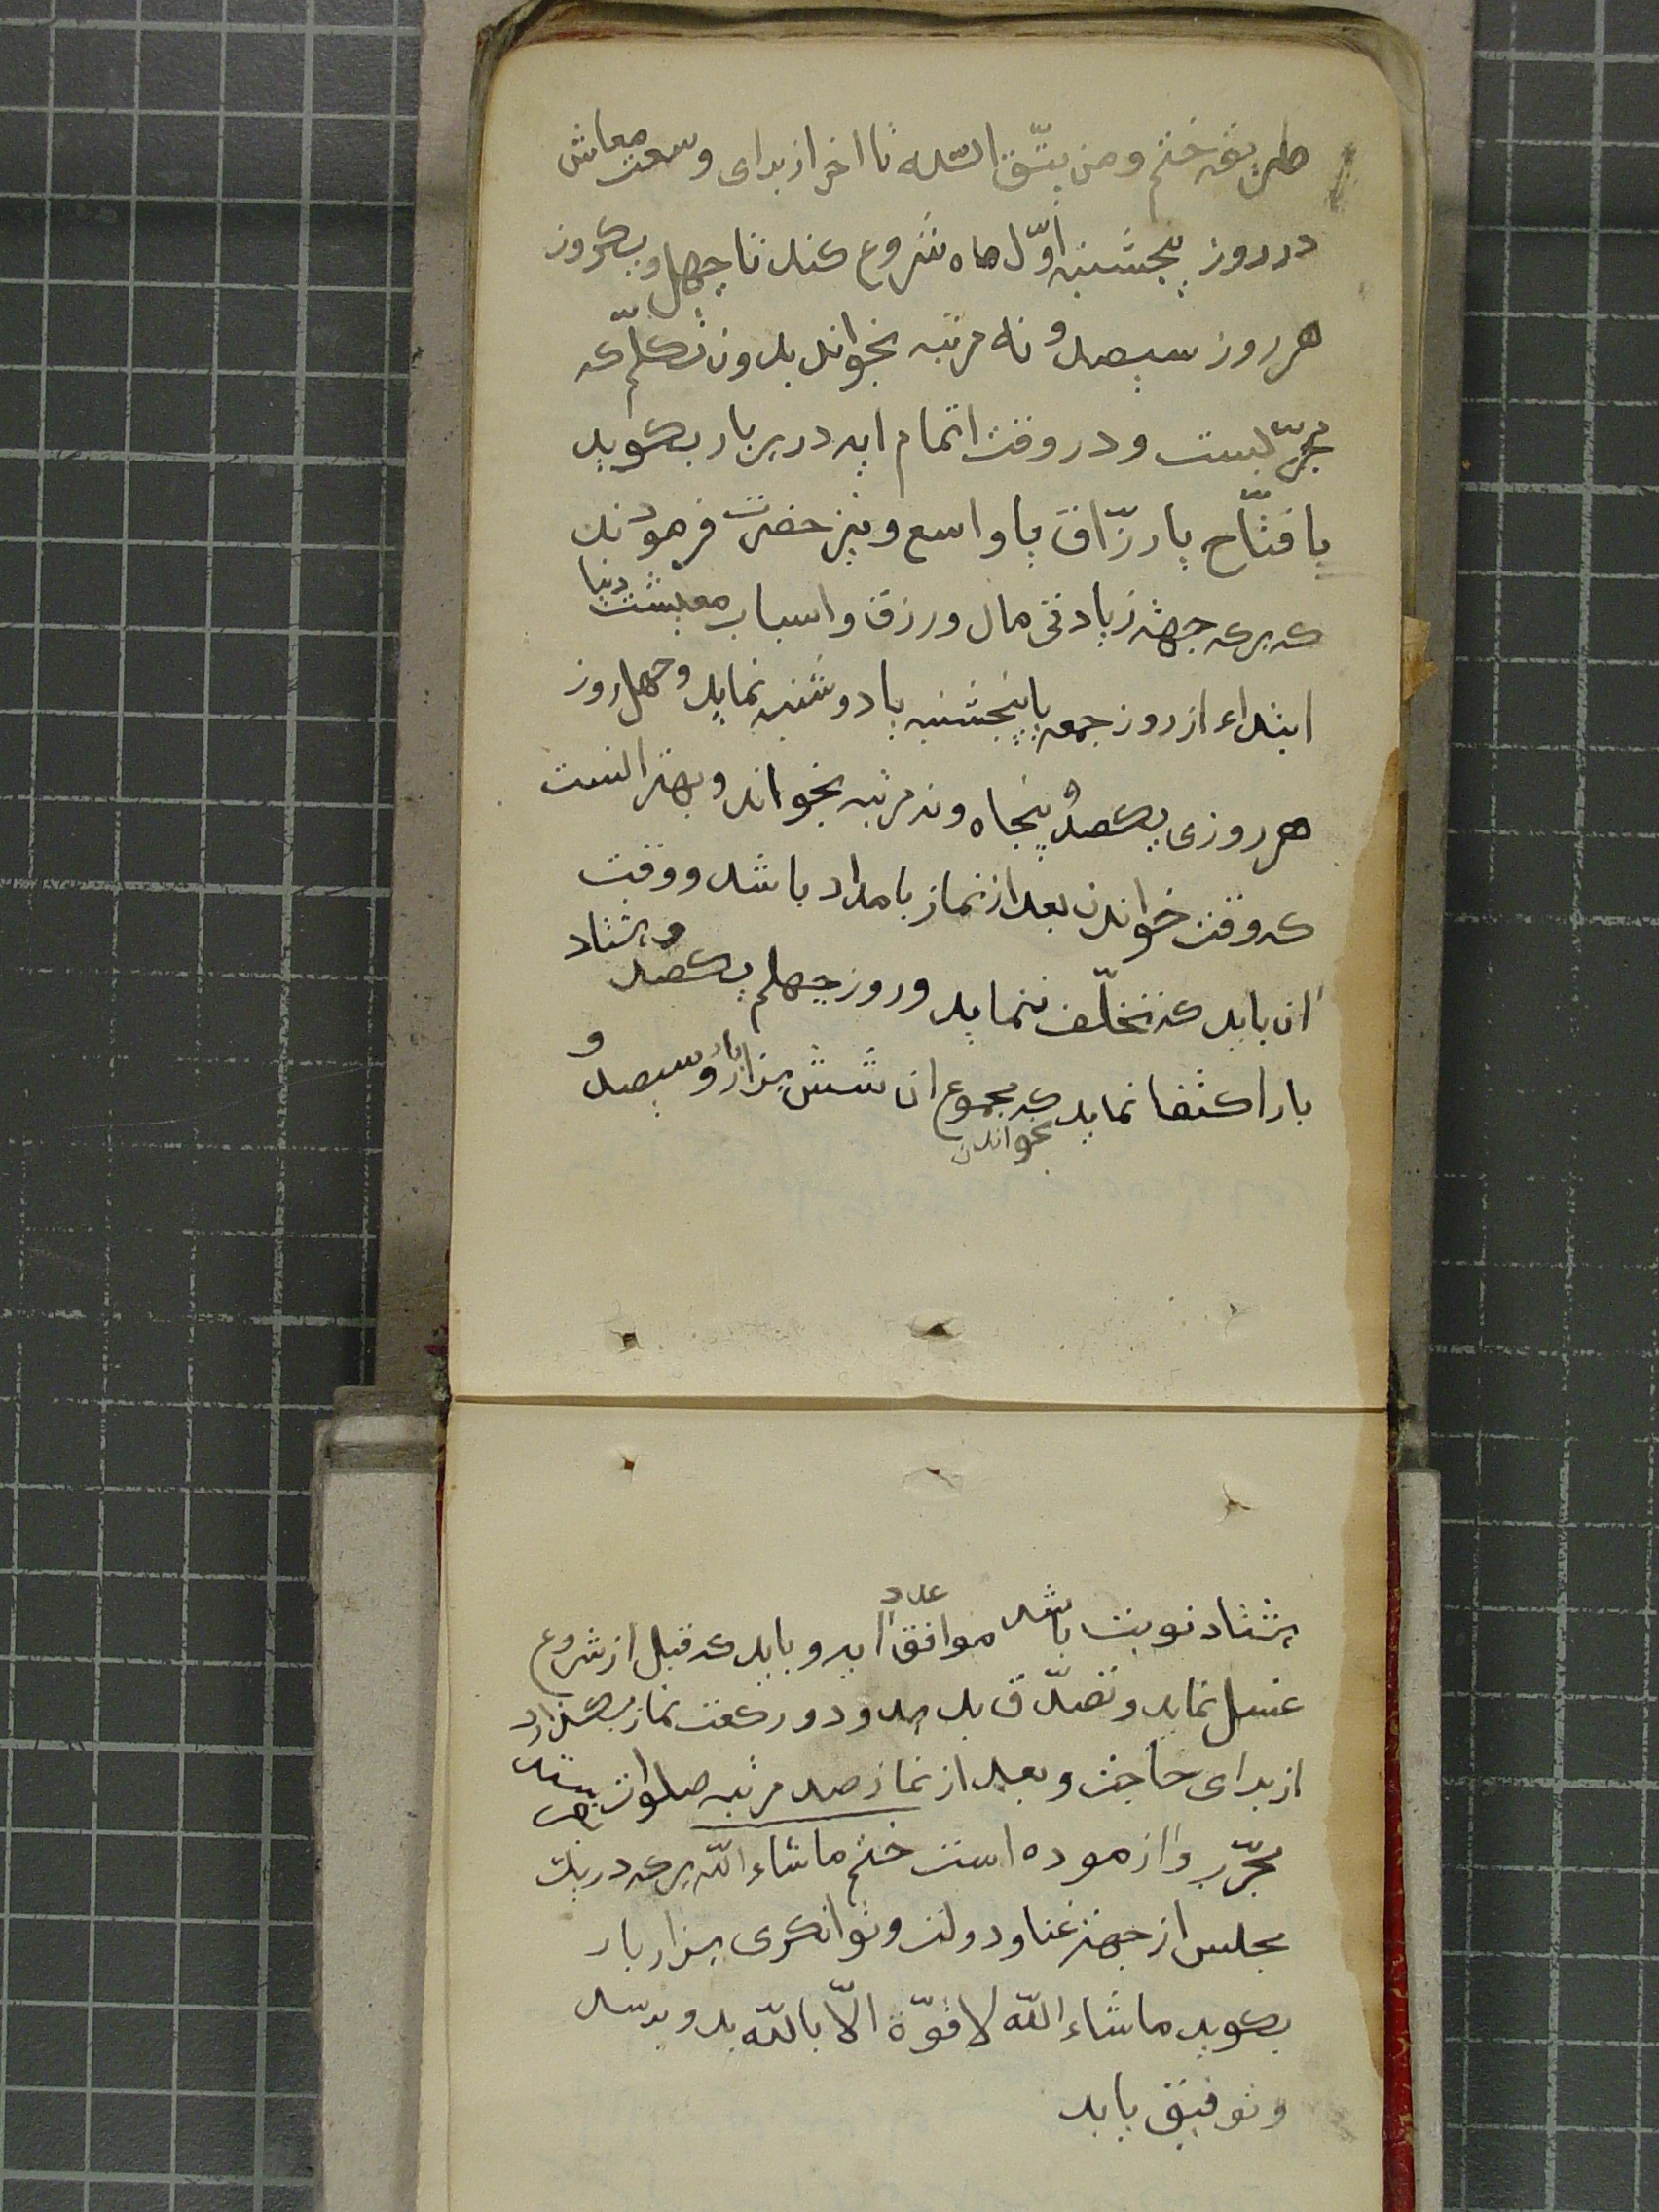 طریقه ختم و من یتّق اللّه تا اخر از برای وسعت معاش
در روز پنجشنبه اوّل ماه شروع کند تا چهل و یکروز
هر روز سیصد و نه مرتبه بخواند بدون تکلّم که
مجرّبست و در وقت اتمام ایه در هر بار بکوید
یا فتّاح یا رزّاق یا واسع و نیز حضرت فرمودند
که هرکه جهة زیادتی مال و رزق و اسباب معیشت دنیا
ابتداء از روز جمعه یا پنجشنبه یا دوشنبه نماید و چهل روز
هر روزی یکصد و پنجاه و نه مرتبه بخواند و بهتر انست
که وقت خواندن بعد از نماز بامداد باشد و وقت
ان باید که تخلّف ننماید و روز چهلم یکصد و هشتاد
بار اکتفا نماید بخواندن که مجموع ان شش هزار بار و سیصد و
هشتاد نوبت باشد موافق عدد ایه و باید که قبل از شروع
غسل نماید و تصدّق بدهد و دو رکعت نماز بکذارد
از برای حاجت و بعد از نماز صد مرتبه صلوات بفرستد
مجرّب و ازموده است ختم ماشاء اللّه هرکه در یک
مجلس از جهة غنا و دولت و توانکری هزار بار
بکوید ماشاء اللّه لا قوّة الّا باللّه بدو برسد
و توفیق یابد